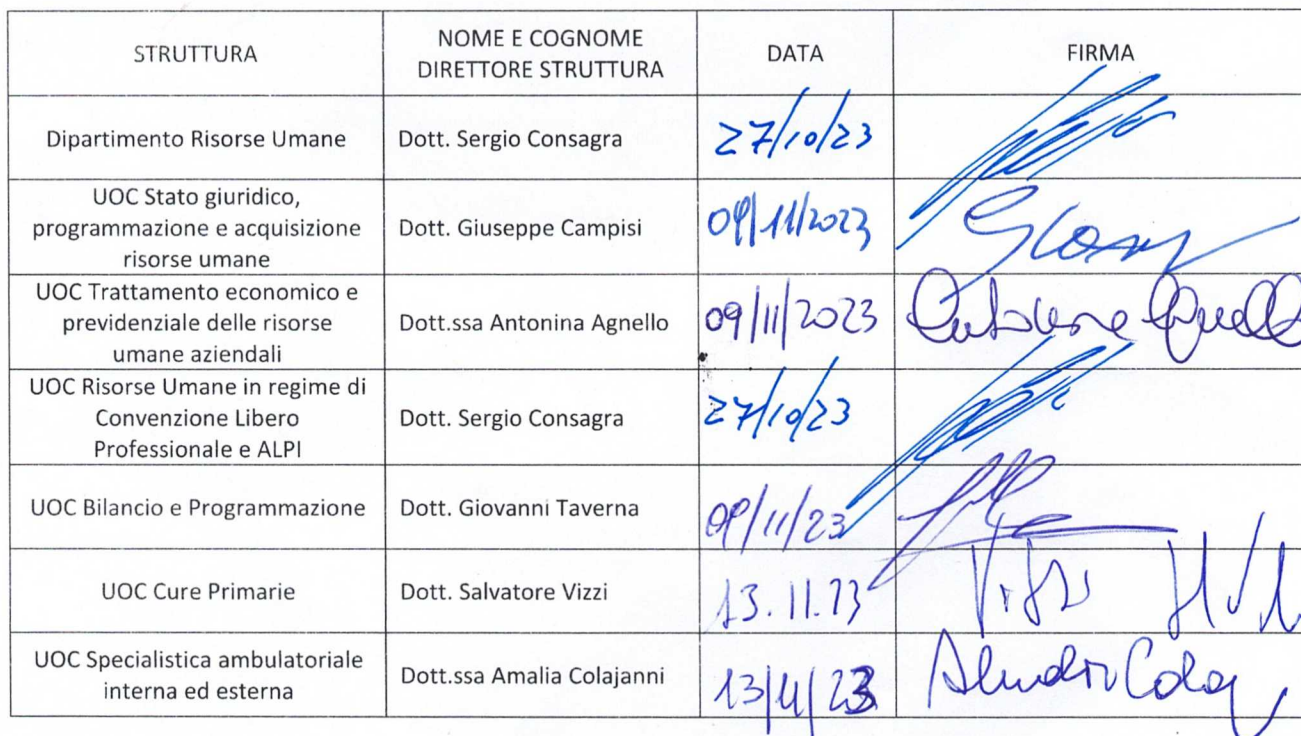 STRUTTURA
NOME E COGNOME
DIRETTORE STRUTTURA
DATA
FIRMA
Dipartimento Risorse Umane
Dott. Sergio Consagra
27/10/23
UOC Stato giuridico,
programmazione e acquisizione
risorse umane
Dott. Giuseppe Campisi
09/11/2023
UOC Trattamento economico e
previdenziale delle risorse
umane aziendali
Dott.ssa Antonina Agnello
09/11/2023
UOC Risorse Umane in regime di
Convenzione Libero
Professionale e ALPI
Dott. Sergio Consagra
27/10/23
UOC Bilancio e Programmazione
Dott. Giovanni Taverna
09/11/23
UOC Cure Primarie
Dott. Salvatore Vizzi
13.11.23
UOC Specialistica ambulatoriale
interna ed esterna
Dott.ssa Amalia Colajanni
13/11/23